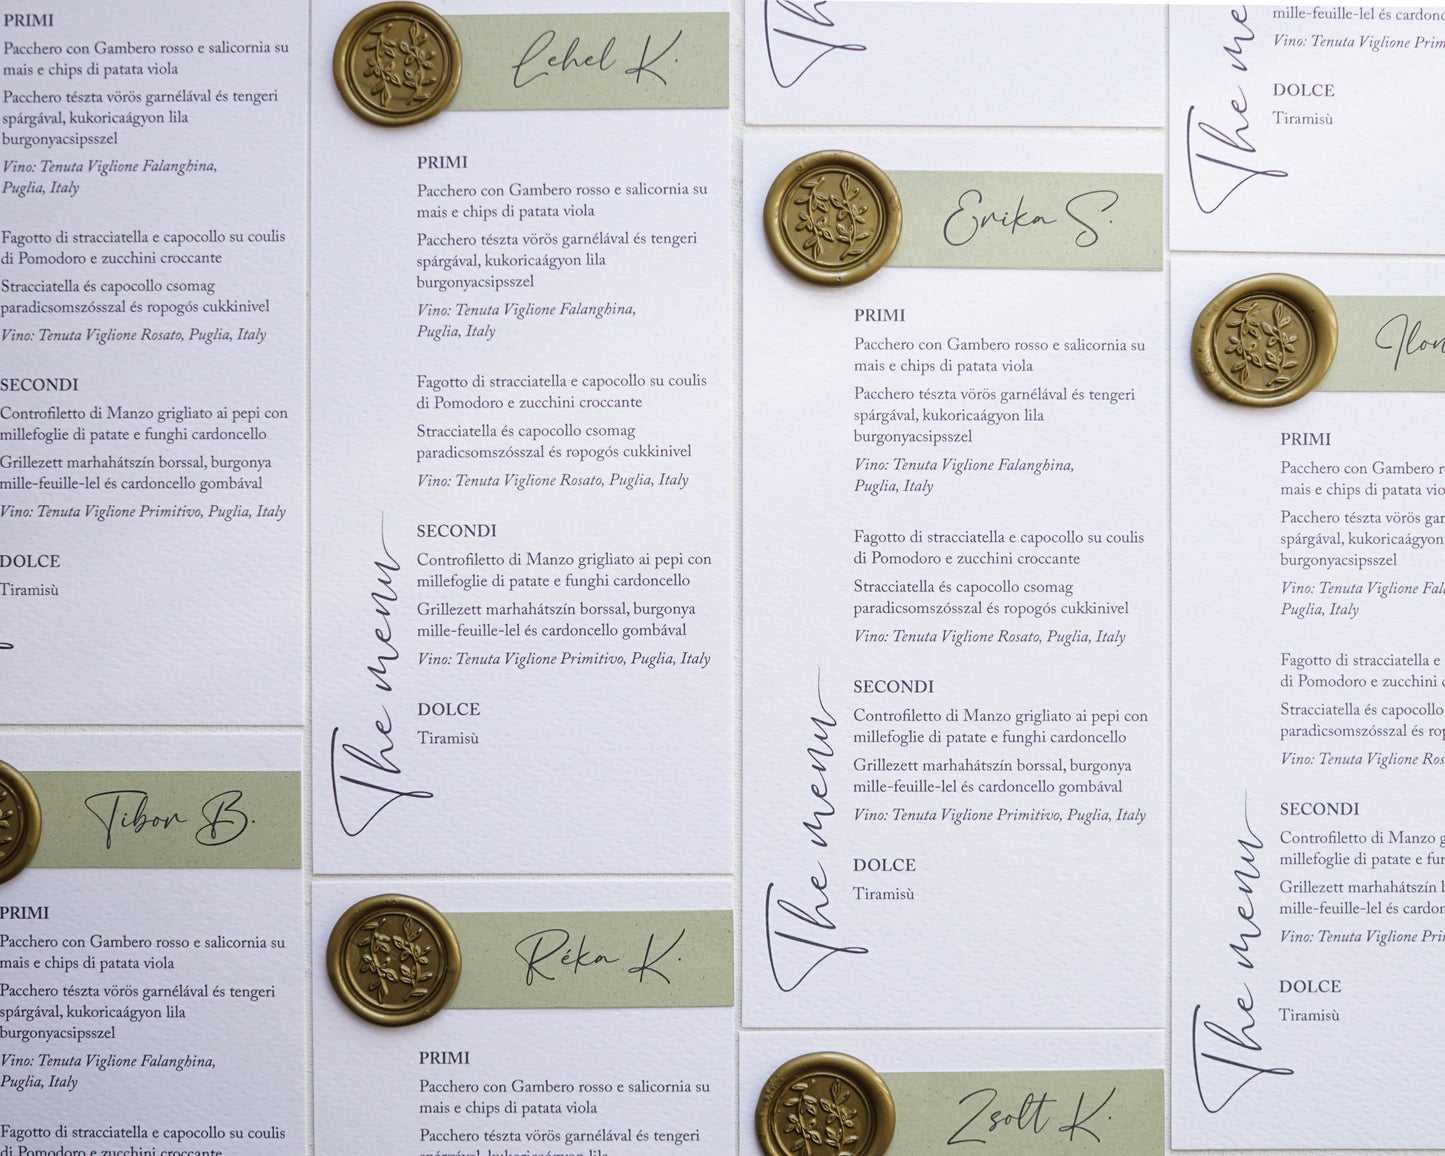 PRIMI
Pacchero con Gambero rosso e salicornia su
mais e chips di patata viola
Pacchero tészta vörös garnélával és tengeri
spárgával, kukoricaágyon lila
burgonyacsipsszel
Vino: Tenuta Viglione Falanghina,
Puglia, Italy
Fagotto di stracciatella e capocollo su coulis
di Pomodoro e zucchini croccante
Stracciatella és capocollo csomag
paradicsomszósszal és ropogós cukkinivel
Vino: Tenuta Viglione Rosato, Puglia, Italy
SECONDI
Controfiletto di Manzo grigliato ai pepi con
millefoglie di patate e funghi cardoncello
Grillezett marhahátszín borssal, burgonya
mille-feuille-lel és cardoncello gombával
Vino: Tenuta Viglione Primitivo, Puglia, Italy
DOLCE
Tiramisù
Tibor B.
PRIMI
Pacchero con Gambero rosso e salicornia su
mais e chips di patata viola
Pacchero tészta vörös garnélával és tengeri
spárgával, kukoricaágyon lila
burgonyacsipsszel
Vino: Tenuta Viglione Falanghina,
Puglia, Italy
Fagotto di stracciatella e capocollo su coulis
di Pomodoro e zucchini croccante
Lehel K.
PRIMI
Pacchero con Gambero rosso e salicornia su
mais e chips di patata viola
Pacchero tészta vörös garnélával és tengeri
spárgával, kukoricaágyon lila
burgonyacsipsszel
Vino: Tenuta Viglione Falanghina,
Puglia, Italy
Fagotto di stracciatella e capocollo su coulis
di Pomodoro e zucchini croccante
Stracciatella és capocollo csomag
paradicsomszósszal és ropogós cukkinivel
Vino: Tenuta Viglione Rosato, Puglia, Italy
SECONDI
Controfiletto di Manzo grigliato ai pepi con
millefoglie di patate e funghi cardoncello
Grillezett marhahátszín borssal, burgonya
mille-feuille-lel és cardoncello gombával
Vino: Tenuta Viglione Primitivo, Puglia, Italy
DOLCE
Tiramisù
The menu
Réka K.
PRIMI
Pacchero con Gambero rosso e salicornia su
mais e chips di patata viola
Pacchero tészta vörös garnélával és tengeri
Th
Erika S.
PRIMI
Pacchero con Gambero rosso e salicornia su
mais e chips di patata viola
Pacchero tészta vörös garnélával és tengeri
spárgával, kukoricaágyon lila
burgonyacsipsszel
Vino: Tenuta Viglione Falanghina,
Puglia, Italy
Fagotto di stracciatella e capocollo su coulis
di Pomodoro e zucchini croccante
Stracciatella és capocollo csomag
paradicsomszósszal és ropogós cukkinivel
Vino: Tenuta Viglione Rosato, Puglia, Italy
SECONDI
Controfiletto di Manzo grigliato ai pepi con
millefoglie di patate e funghi cardoncello
Grillezett marhahátszín borssal, burgonya
mille-feuille-lel és cardoncello gombával
Vino: Tenuta Viglione Primitivo, Puglia, Italy
DOLCE
Tiramisù
The menu
Zsolt K.
mille-feuille-lel és cardonc
Vino: Tenuta Viglione Prim
DOLCE
Tiramisù
The me
Ilon
PRIMI
Pacchero con Gambero r
mais e chips di patata vio
Pacchero tészta vörös gar
spárgával, kukoricaágyon
burgonyacsipsszel
Vino: Tenuta Viglione Fal
Puglia, Italy
Fagotto di stracciatella e
di Pomodoro e zucchini c
Stracciatella és capocollo
paradicsomszósszal és rop
Vino: Tenuta Viglione Ros
SECONDI
Controfiletto di Manzo g
millefoglie di patate e fun
Grillezett marhahátszín b
mille-feuille-lel és cardon
Vino: Tenuta Viglione Pri
DOLCE
Tiramisù
The menu